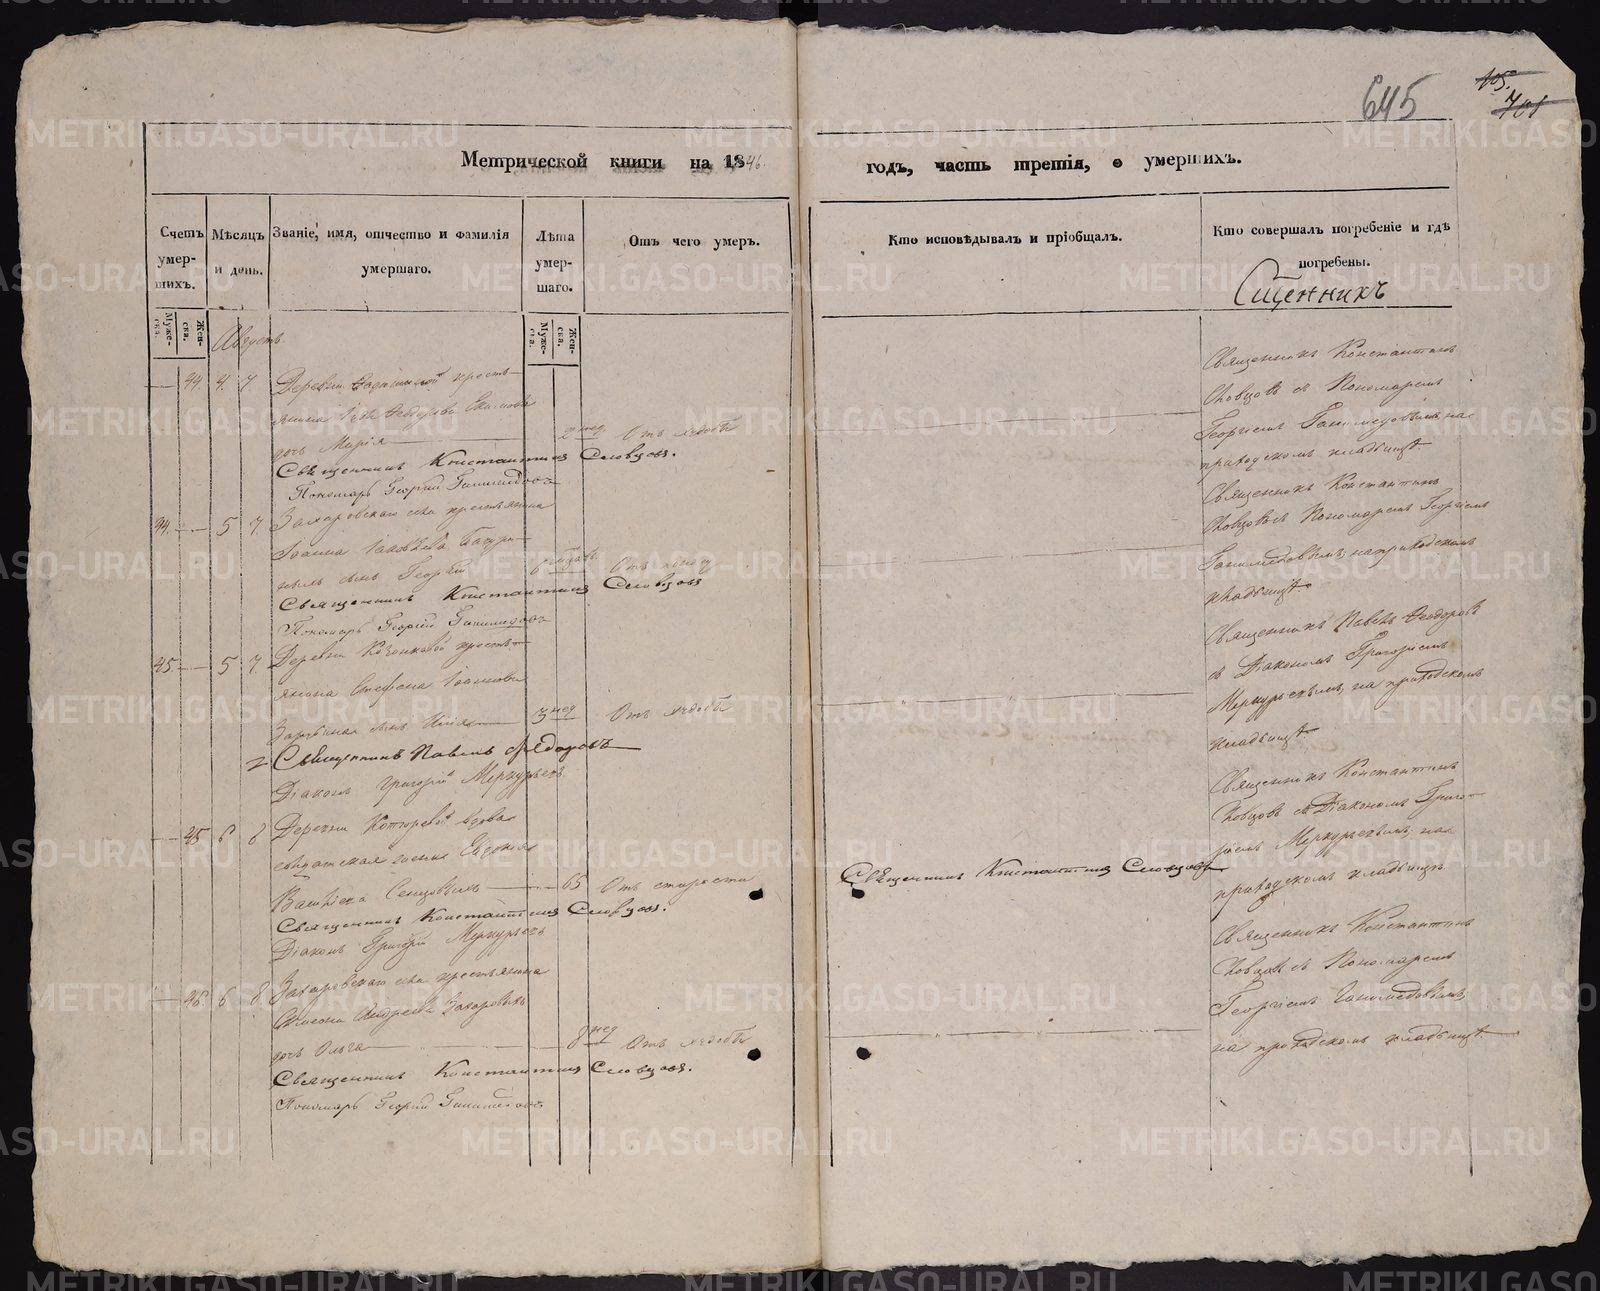 645
105.
701
Метрической книги на 1846.
годъ, часть третія, о умершихъ.
Счетъ умер-шихъ.
Мѣсяцъ и день.
Званіе, имя, отчество и фамилія умершаго.
Лѣта умер-шаго.
Отъ чего умеръ.
Кто исповѣдывалъ и пріобщалъ.
Кто совершалъ погребеніе и гдѣ погребены.
Муже-ска.
Жен-ска.
Муже-ска.
Жен-ска.
Августъ.
44. 4. 7
Деревни крестъ-
янина Ѳеодорова
дочь Марія
2 нед. Отъ
Священникъ Константинъ Словцовъ.
Пономарь Георгій Ганимедовъ
44. 5 7.
Захаровскаго села крестьянина
Іоанна Іаковлева
сынъ Георгій
6
Священникъ Константинъ Словцовъ
Пономарь Георгій Ганимедовъ
45. 5 7.
Деревни крестъ-
янина Стефана Іоаннова
сынъ Илія
3 нед Отъ
Священникъ Павелъ Фѣдоровъ
Діаконъ Григорій Меркурьевъ
45 6 8
Деревни вдова
солдатская жена Евдокія
65 Отъ старости
Священникъ Константинъ Словцовъ.
Діаконъ Григорій Меркурьевъ
46. 6 8.
Захаровскаго села крестьянина
Андреева Захаровыхъ
дочь Ольга
8 нед Отъ
Священникъ Константинъ Словцовъ.
Пономарь Георгій Ганимедовъ
Священникъ Константинъ Словцовъ
Священникъ Константинъ
Словцовъ съ Пономаремъ
Георгіемъ Ганимедовымъ, на
приходскомъ кладбищѣ.
Священникъ Константинъ
Словцовъ съ Пономаремъ Георгіемъ
Ганимедовымъ, на приходскомъ
кладбищѣ
Священникъ Павелъ Ѳеодоровъ
съ Діакономъ Григоріемъ
Меркурьевымъ, на приходскомъ
кладбищѣ
Священникъ Константинъ
Словцовъ съ Діакономъ Григо-
ріемъ Меркурьевымъ, на
приходскомъ кладбищѣ
Священникъ Константинъ
Словцовъ съ Пономаремъ
Георгіемъ Ганимедовымъ,
на приходскомъ кладбищѣ.
METRIKI.GASO-URAL.RU